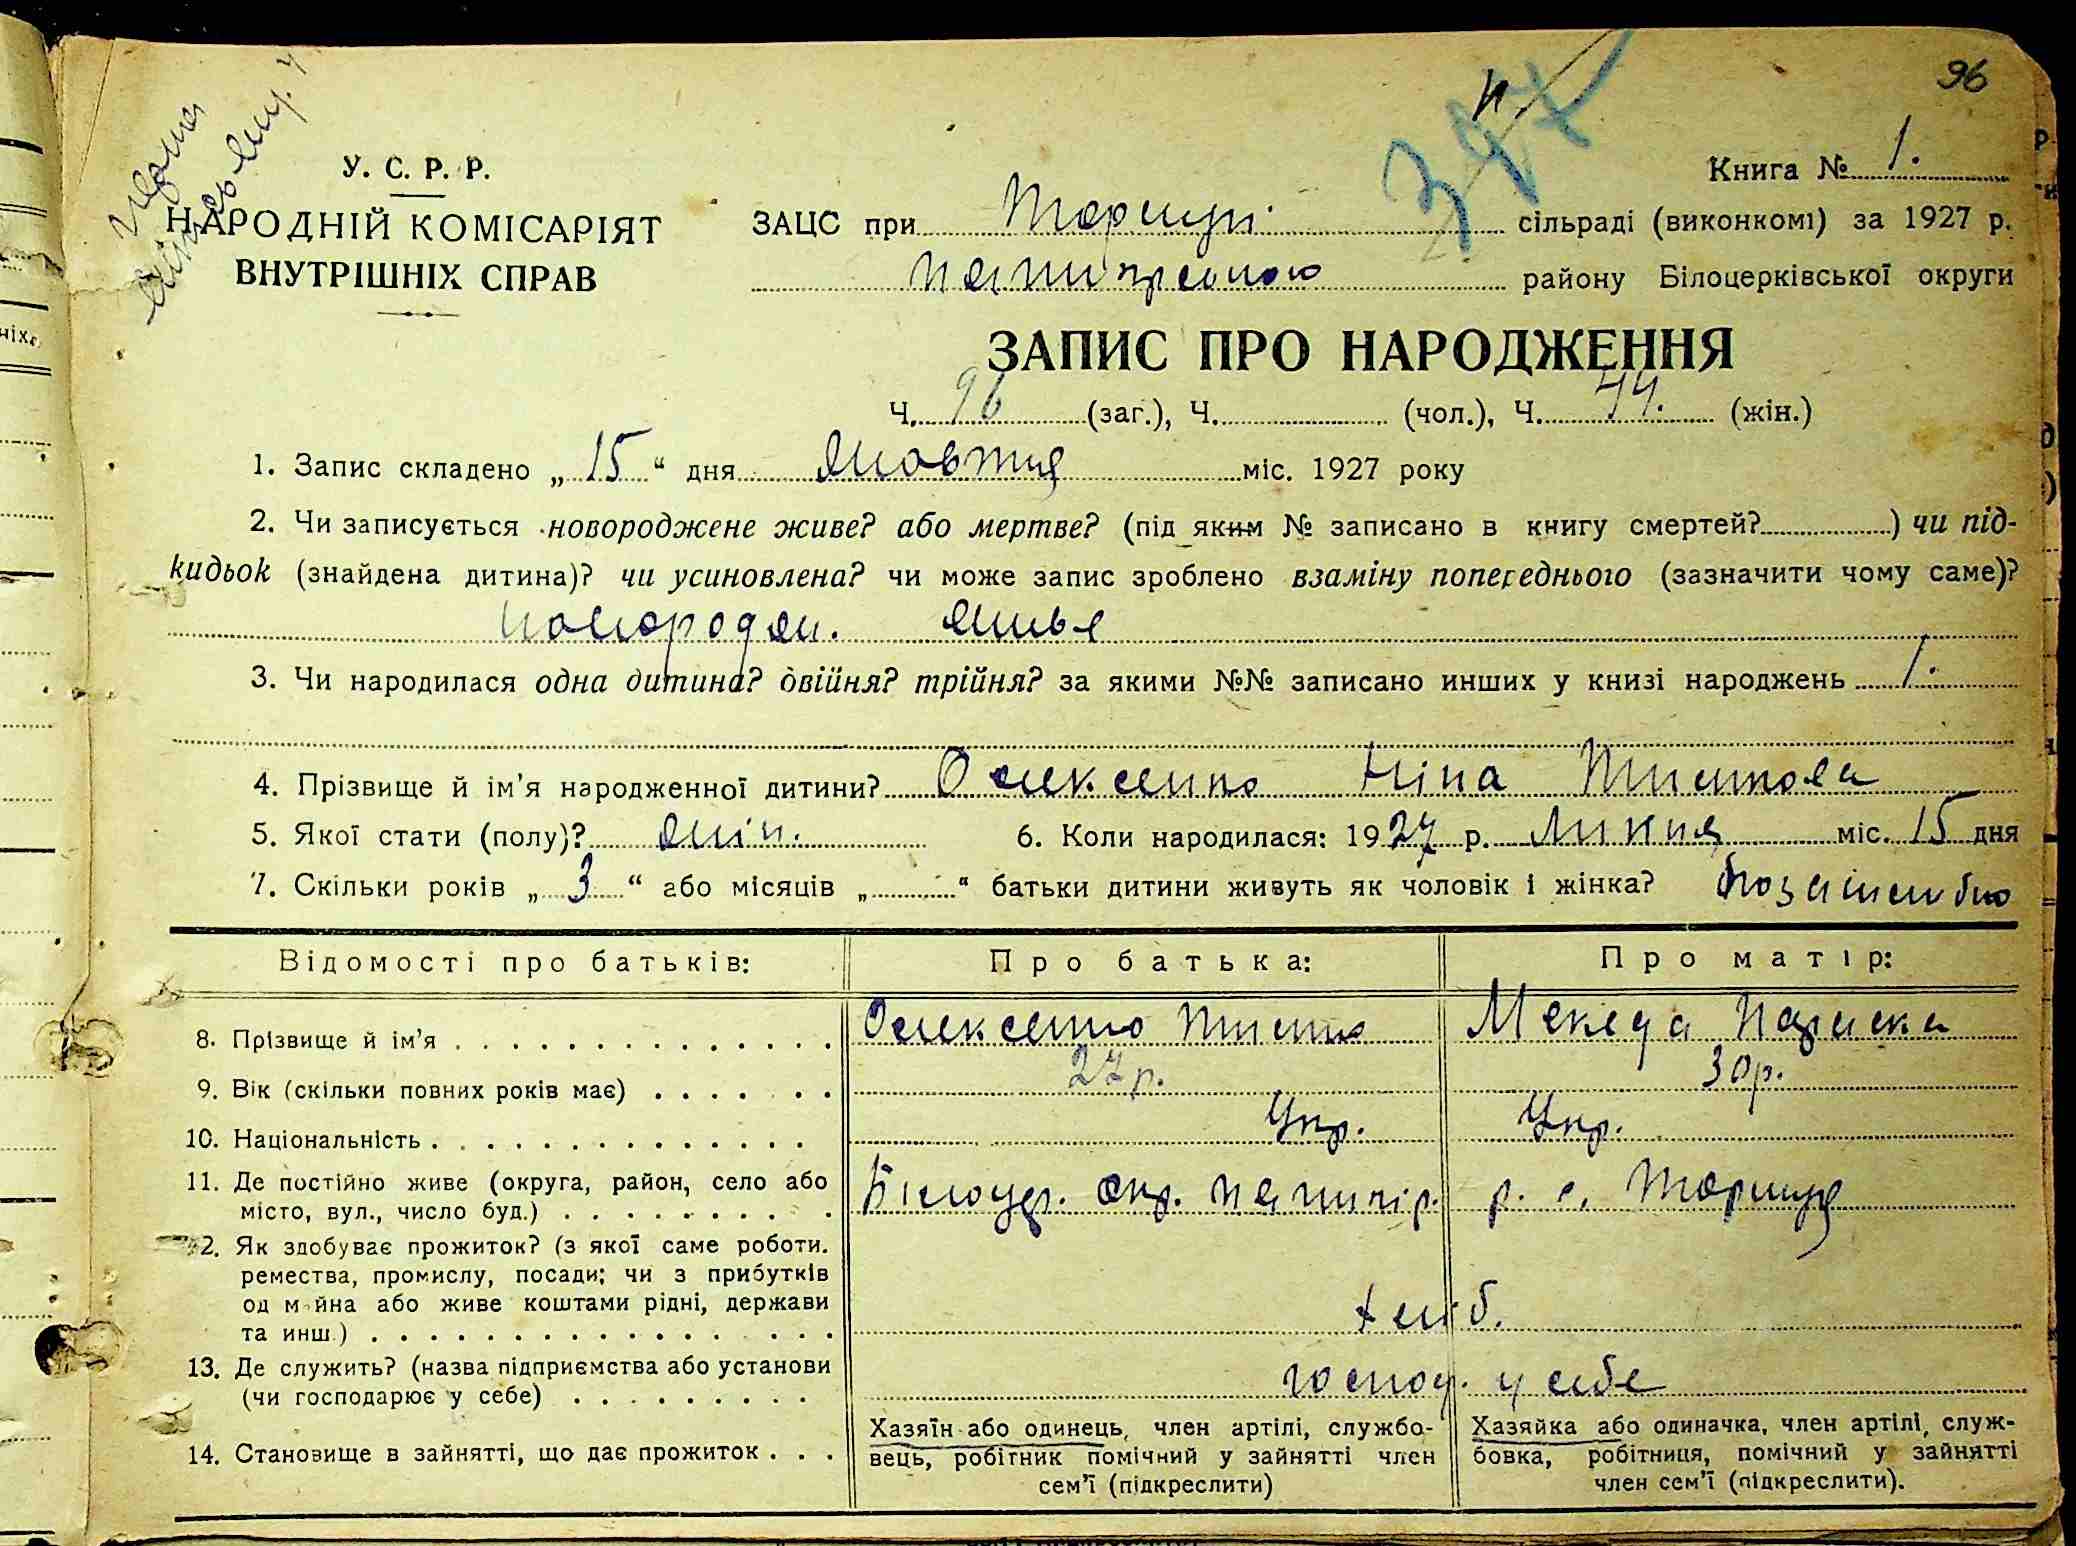 96
У. С. Р. Р.
Книга № 1.
НАРОДНІЙ КОМІСАРІЯТ
ВНУТРІШНІХ СПРАВ
ЗАЦС при Торчиці сільраді (виконкомі) за 1927 р.
району Білоцерківської округи
ЗАПИС ПРО НАРОДЖЕННЯ
Ч. 96 (заг.), Ч. (чол.), Ч. 44. (жін.)
1. Запис складено „ 15 “ дня Жовтня міс. 1927 року
2. Чи записується новороджене живе? або мертве? (під яким № записано в книгу смертей? ) чи під-
кидьок (знайдена дитина)? чи усиновлена? чи може запис зроблено взаміну попереднього (зазначити чому саме)?
новородж. живе
3. Чи народилася одна дитина? двійня? трійня? за якими №№ записано инших у книзі народжень 1.
4. Прізвище й ім’я народженної дитини? Олексенко Ніна
5. Якої стати (полу)? жін. 6. Коли народилася: 1927 р. Липня міс. 15 дня
7. Скільки років „ 3 “ або місяців „ “ батьки дитини живуть як чоловік і жінка?
Відомості про батьків: Про батька: Про матір:
8. Прізвище й ім’я Олексенко
9. Вік (скільки повних років має) 27 р. 30 р.
10. Національність Укр. Укр.
11. Де постійно живе (округа, район, село або
місто, вул., число буд.) Білоцер. окр. р. с. Торчиця
12. Як здобуває прожиток? (з якої саме роботи.
ремества, промислу, посади; чи з прибутків
од майна або живе коштами рідні, держави
та инш.) хліб.
13. Де служить? (назва підприємства або установи
(чи господарює у себе) господ. у себе
14. Становище в зайнятті, що дає прожиток
Хазяїн або одинець, член артілі, службо-
вець, робітник помічний у зайнятті член
сем’ї (підкреслити)
Хазяйка або одиначка, член артілі, служ-
бовка, робітниця, помічний у зайнятті
член сем’ї (підкреслити).